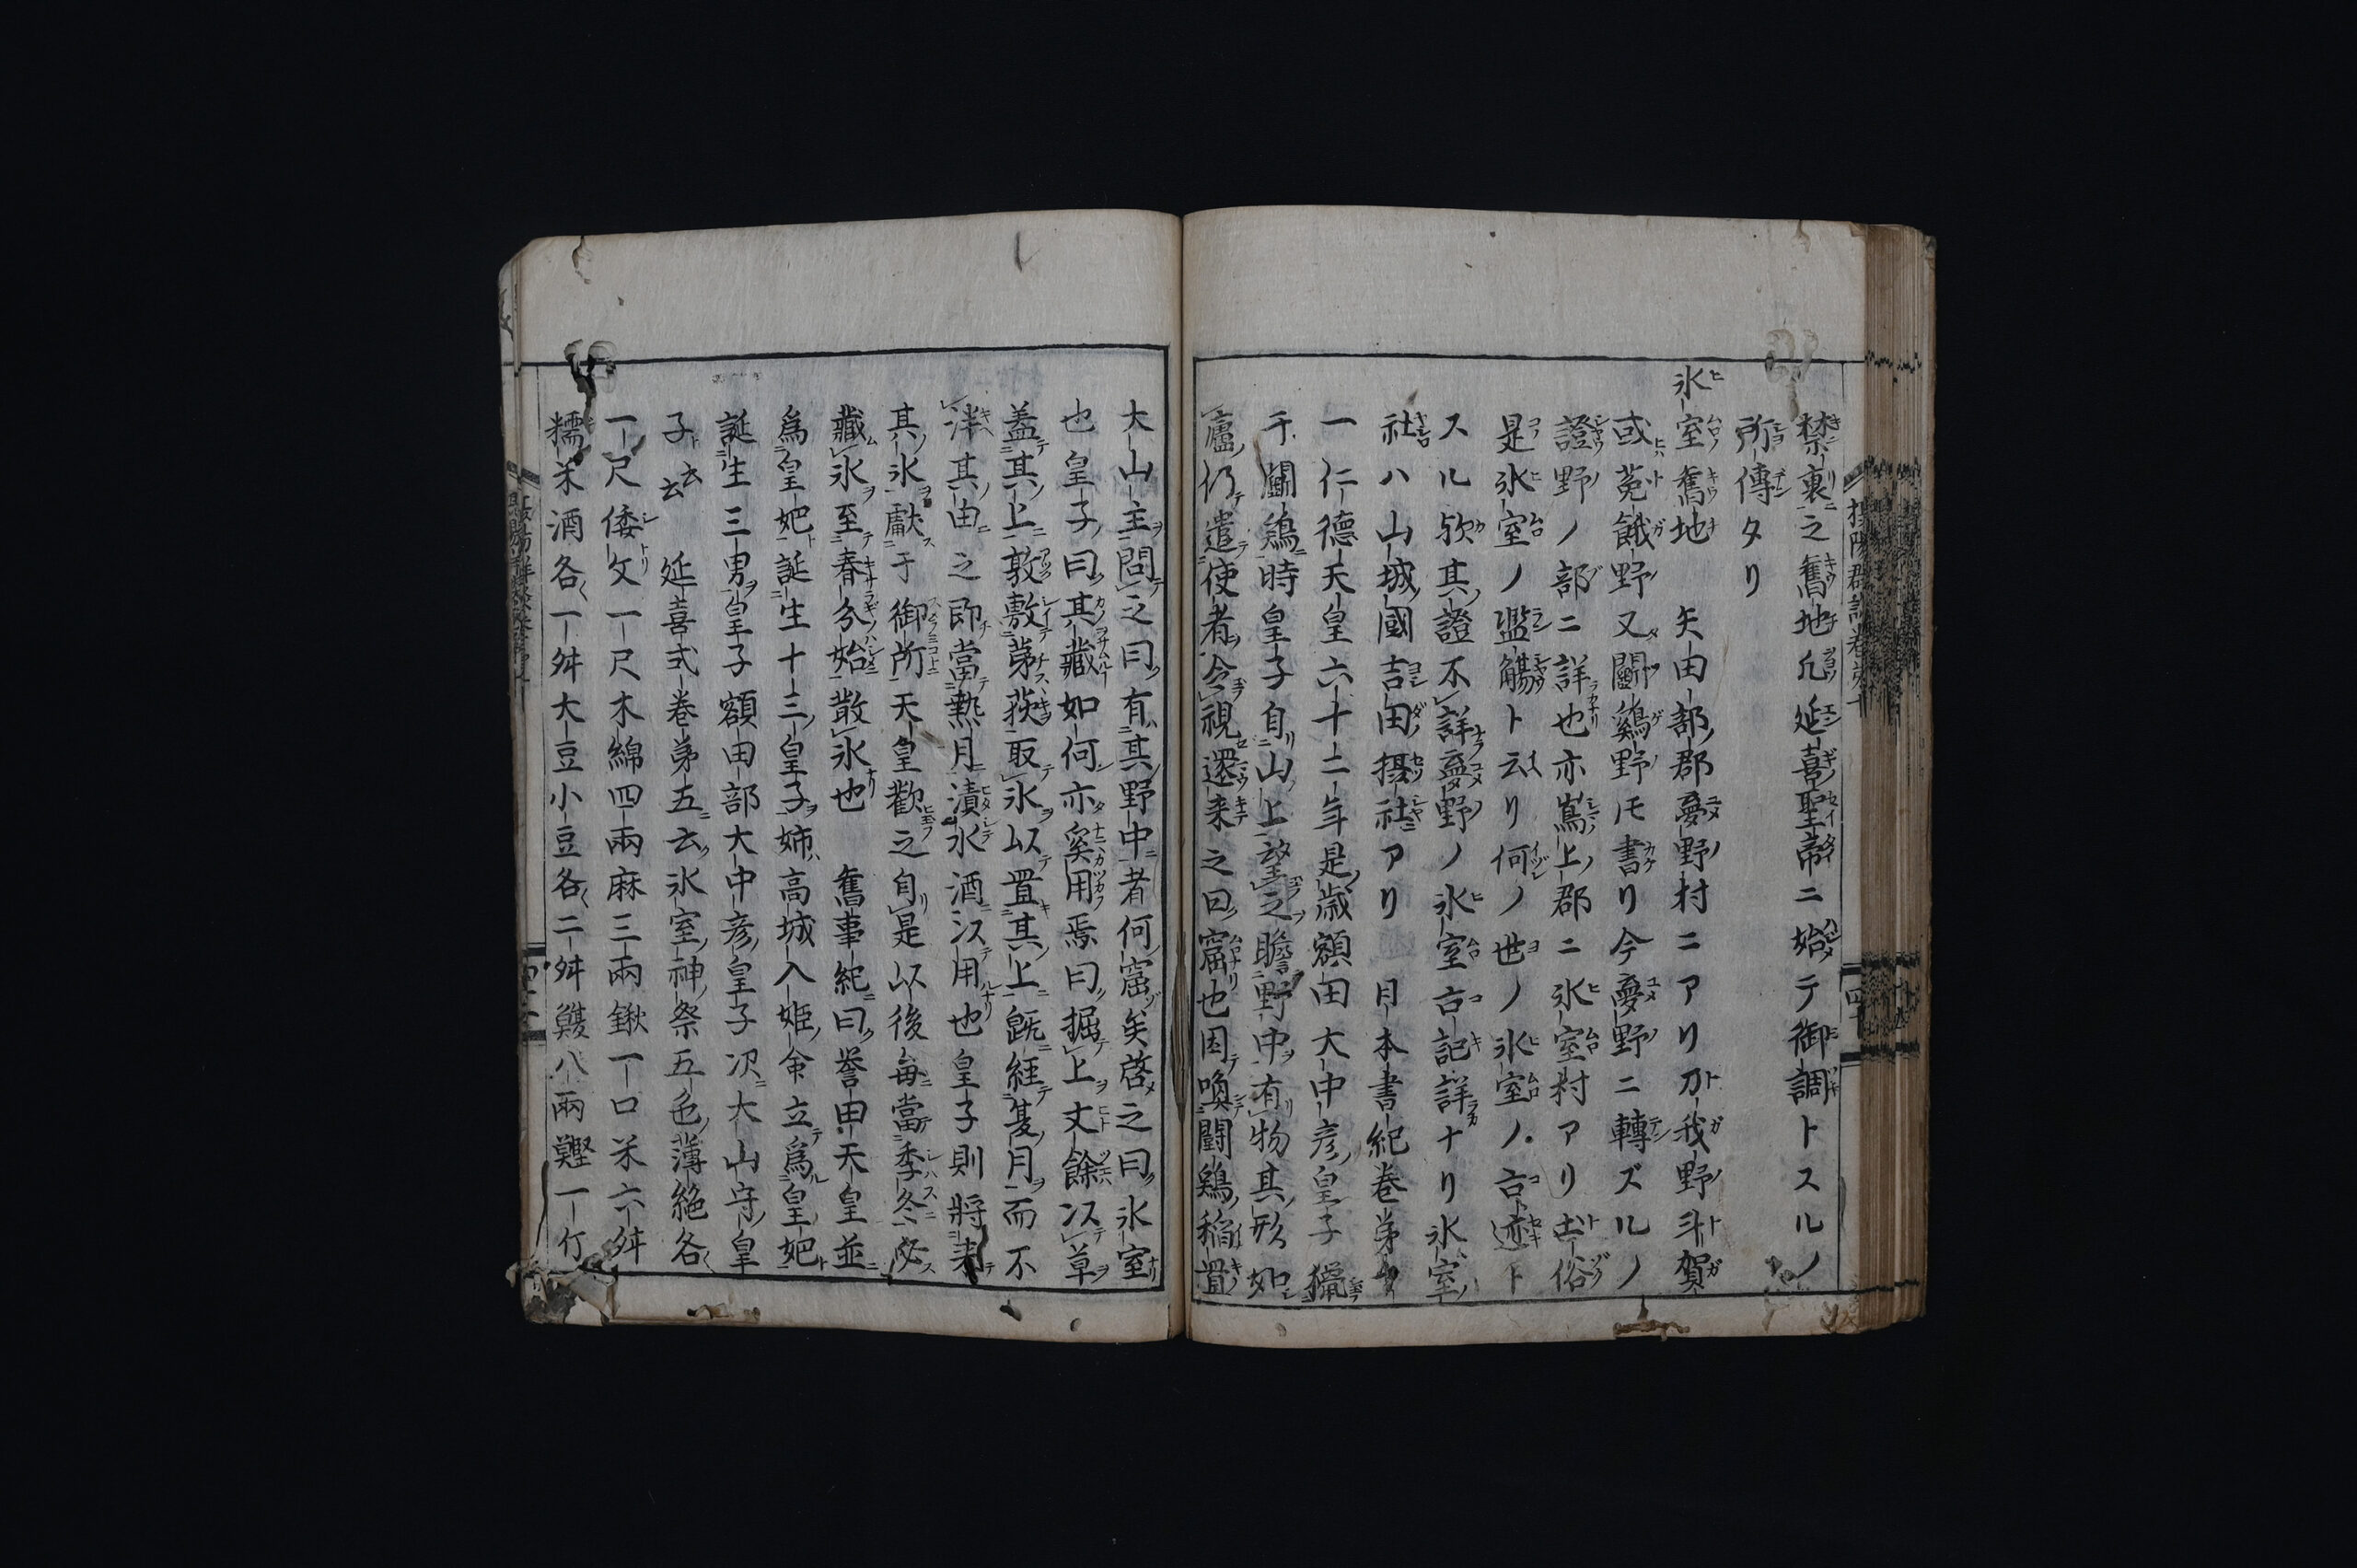 禁裏之舊地凢延喜聖帝ニ始テ御調トスルノ
所傳タリ
氷室舊地　矢田部郡夢野村ニアリ刀我野斗賀
或菟餓野又闘鷄野モ書リ今夢野ニ轉ズルノ
證野ノ部ニ詳也亦嶌上郡ニ氷室村アリ土俗
是氷室ノ濫觴ト云リ何ノ世ノ氷室ノ古迹ト
スル欤其證不詳夢野ノ氷室古記詳ナリ氷室
社ハ山城國吉田摂社アリ　日本書紀巻第十
一仁德天皇六十二年是歳額田大中彦皇子獵
于闘鶏時皇子自山上望之瞻野中有物其形如
廬仍遣使者令視還来之曰窟也因喚闘鶏稲置
大山主問之曰有其野中者何窟矣啓之曰氷室
也皇子曰其藏如何亦奚用焉曰掘上丈餘以草
蓋其上敦敷茅荻取氷以置其上既経夏月而不
泮其由之即當熱月漬水酒以用也皇子則将来
其氷獻于御所天皇歡之自是以後毎當季冬必
藏氷至春分始散氷也　舊事紀曰譽田天皇並
爲皇妃誕生十三皇子姉高城入姫命立爲皇妃
誕生三男皇子額田部大中彦皇子次大山守皇
子云云　延喜式巻第五云氷室神祭五色薄絁各
一尺倭文一尺木綿四兩麻三兩鍬一口米六舛
糯米酒各一舛大豆小豆各二舛鰒八兩鰹一斤